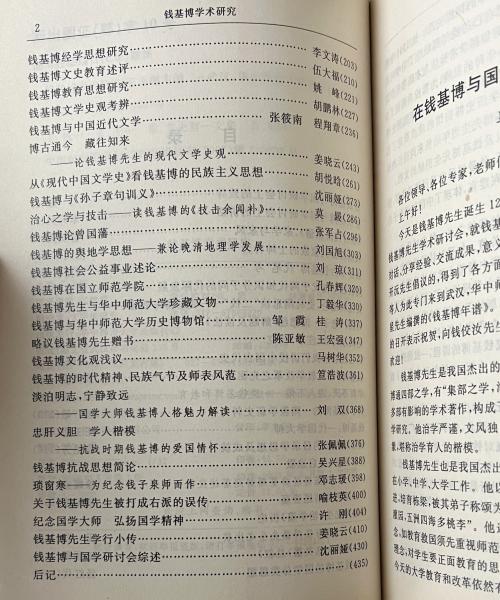 2
钱基博学术研究
钱基博经学思想研究……李文涛(203)
钱基博文史教育述评……伍大福(210)
钱基博教育思想研究……姚 峰(221)
钱基博文学史观考辨……胡鹏林(227)
钱基博与中国近代文学……张筱南 程翔章(236)
博古通今 藏往知来
——论钱基博先生的现代文学史观……姜晓云(243)
从《现代中国文学史》看钱基博的民族主义思想……胡悦晗(261)
钱基博与《孙子章句训义》……沈丽娅(273)
治心之学与技击——读钱基博的《技击余闻补》……莫 最(286)
钱基博论曾国藩……张军占(296)
钱基博的舆地学思想——兼论晚清地理学发展……刘国旭(303)
钱基博社会公益事业述论……刘 琼(311)
钱基博在国立师范学院……孔春辉(320)
钱基博先生与华中师范大学珍藏文物……丁毅华(330)
钱基博与华中师范大学历史博物馆……邹 霞 桂 涛(337)
略议钱基博先生赠书……陈亚敏 王宏强(347)
钱基博文化观浅议……马树华(352)
钱基博的时代精神、民族气节及师表风范……笪浩波(361)
淡泊明志,宁静致远
——国学大师钱基博人格魅力解读……刘 双(368)
忠肝义胆 学人楷模
——抗战时期钱基博的爱国情怀……张佩佩(376)
钱基博抗战思想简论……吴兴星(388)
琐窗寒——为纪念钱子泉师而作……邓志瑗(398)
关于钱基博先生被打成右派的误传……喻枝英(400)
纪念国学大师 弘扬国学精神……许 刚(404)
钱基博先生学行小传……姜晓云(410)
钱基博与国学研讨会综述……沈丽娅(430)
后记……(435)
在钱基博与国
各位领导、各位专家,老师们
上午好!
今天是钱基博先生诞生12
钱基博先生学术研讨会,就钱基
对话,分享经验、交流成果,意义
开沅先生倡议的,得到了各方面
等人为此专门来到武汉,华中师
星先生编撰的《钱基博年谱》
的日开表示祝贺,向钱佼汝先生
欢迎!
钱基博先生是我国杰出的
博通四部之学,有“集部之学,海
多部有影响的学术著作,构成了
学研究。他治学严谨,文风独
量,堪称治学育人的楷模。
钱基博先生也是我国杰出
在小学、中学、大学工作。他以
进、培育栋梁,被其弟子称颂为
雅园,五洲四海多桃李”。他
念,如教育救国须先重视师范
理念;对学生要正面教育的思
今天的大学教育和改革依然有